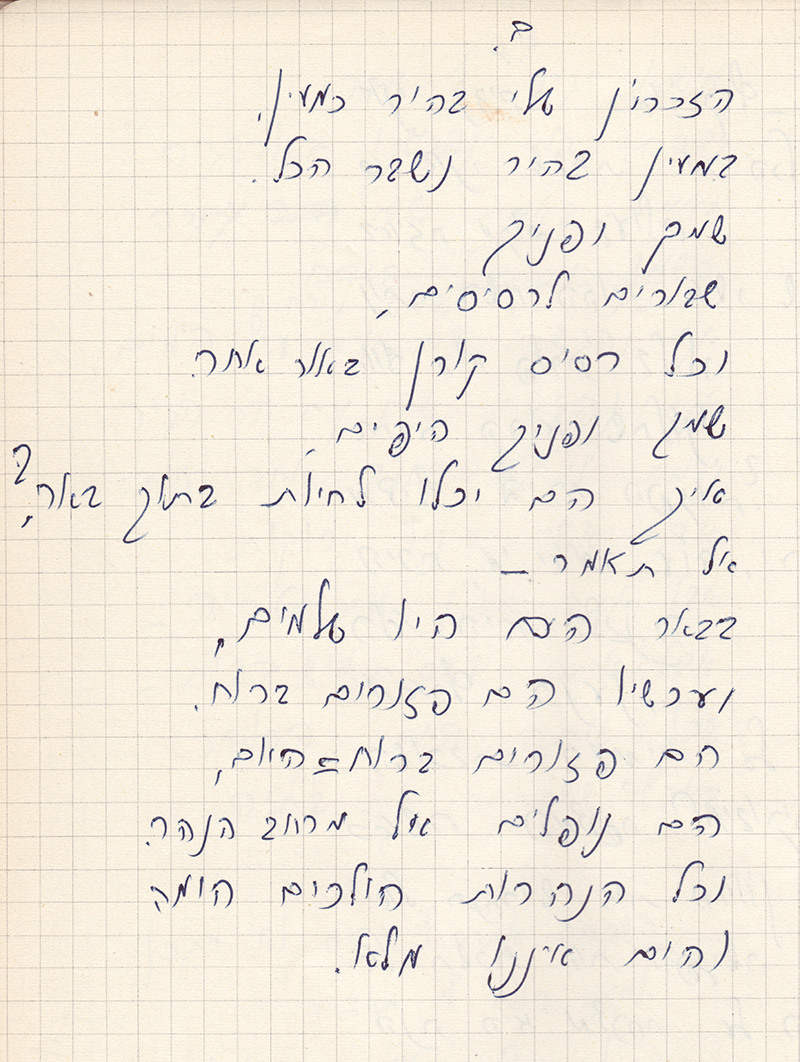 ב.
הזכרון שלי בהיר כמעין.
במעין בהיר נשבר הכל.
שמך ופניך
שבורים לרסיסים,
וכל רסיס קורן באור אחר.
שמך ופניך היפים,
איך הם יכלו לחיות בתוך באר?
אל תאמר –
בבאר הם היו שלמים,
ועכשיו הם פזורים ברוח.
הם פזורים ברוח=היום,
הם נופלים אל מרחב הנהר.
וכל הנהרות הולכים הומה
והים איננו מלא.